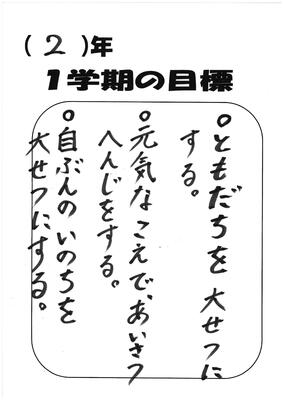 （２）年
１学期の目標
○ともだちを大せつに
する。
○元気なこえで、あいさつ
へんじをする。
○自ぶんのいのちを
大せつにする。